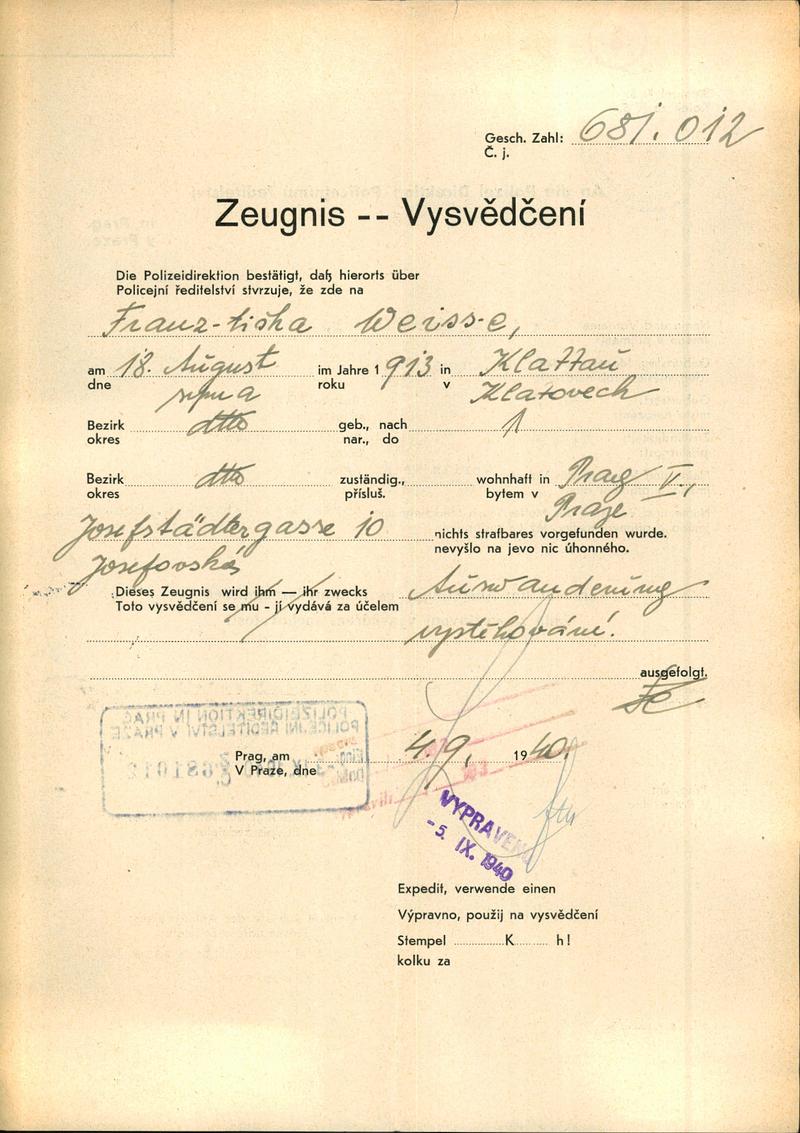 Gesch. Zahl: 681.012
Č. j.
Zeugnis -- Vysvědčení
Die Polizeidirektion bestätigt, daß hierorts über
Policejní ředitelství stvrzuje, že zde na
Franz-tiska Weiss-e,
am 18. August im Jahre 1913 in Klattau
dne srpna roku v Klatovech
Bezirk dtto geb., nach
okres nar., do
Bezirk dtto zuständig., wohnhaft in Prag II.,
okres přísluš. bytem v Praze
Josefstädtergasse 10 nichts strafbares vorgefunden wurde.
Josefovská nevyšlo na jevo nic úhonného.
Dieses Zeugnis wird ihm — ihr zwecks Auswanderung
Toto vysvědčení se mu - jí vydává za účelem
vystěhování.
ausgefolgt.
POLIZEIDIREKTION IN PRAG
POLICEJNÍ ŘEDITELSTVÍ V PRAZE
681012
Prag, am 4.9. 1940.
V Praze, dne
VYPRAVENO
-5. IX. 1940
Expedit, verwende einen
Výpravno, použij na vysvědčení
Stempel K h!
kolku za